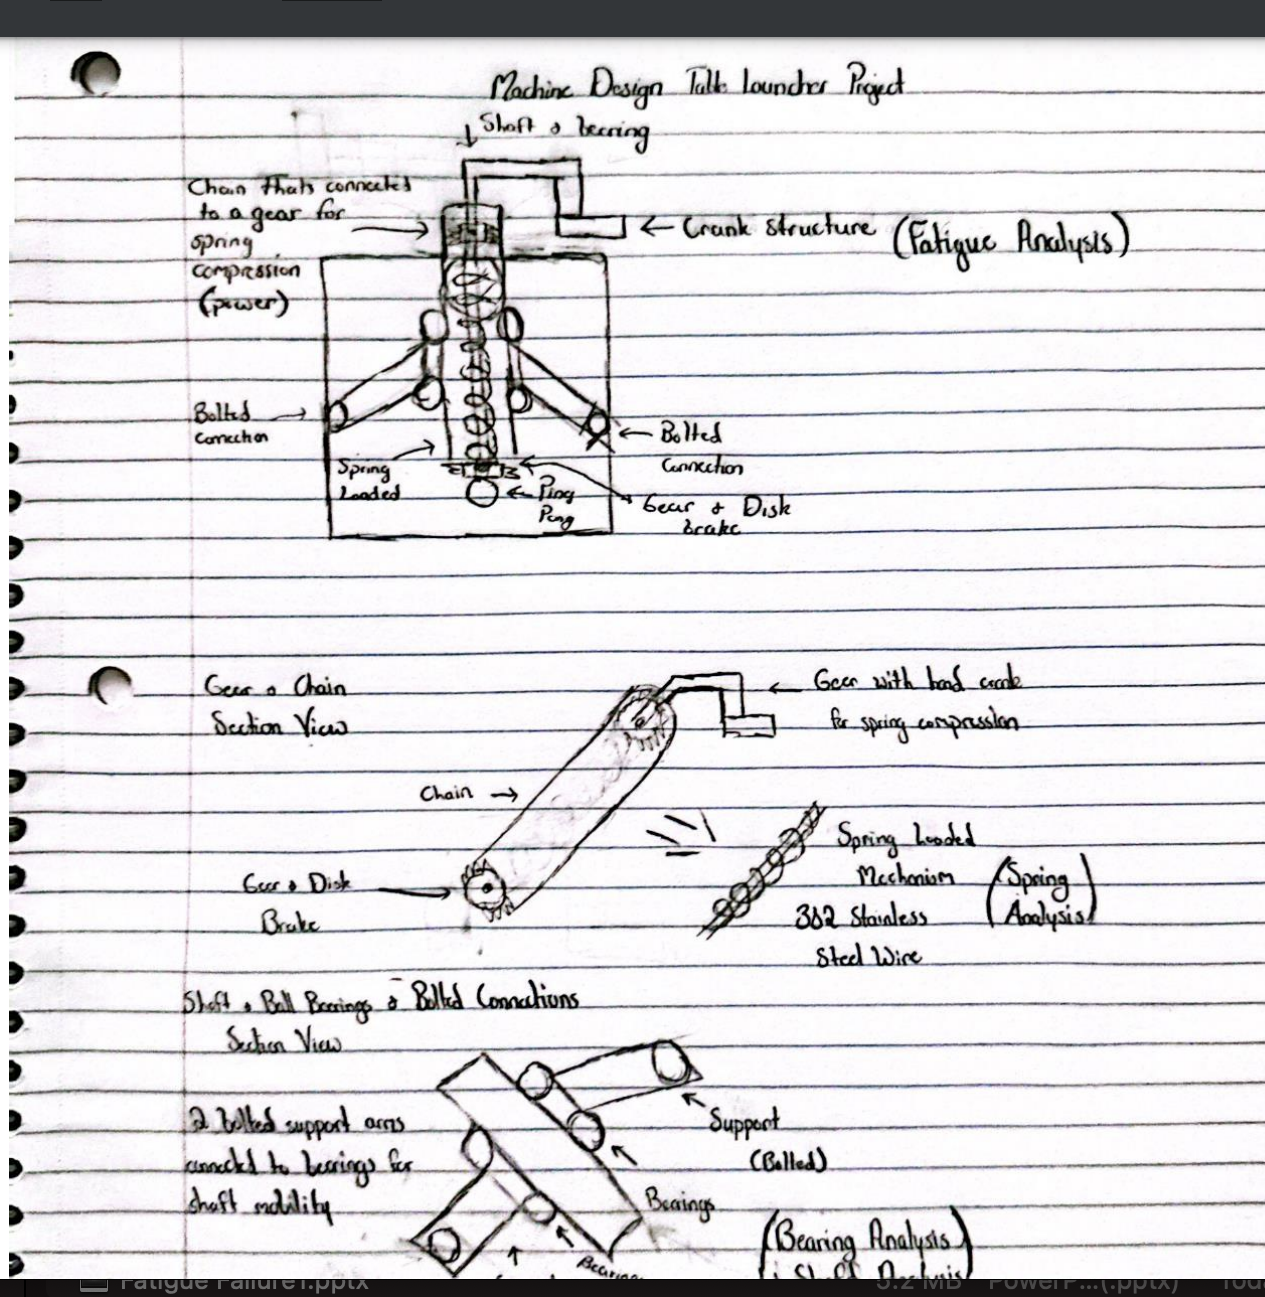 Machine Design Table Launcher Project
Shaft & bearing
Chain thats connected
to a gear for
spring
compression
(power)
Crank Structure (Fatigue Analysis)
Bolted
Connection
Bolted
Connection
Spring
Loaded
Ping
Pong
Gear & Disk
brake
Gear & Chain
Section View
Gear with hand crank
for spring compression
Chain
Gear & Disk
Brake
Spring Loaded
Mechanism
302 Stainless
Steel Wire
(Spring
Analysis)
Shaft & Ball Bearings & Bolted Connections
Section View
2 bolted support arms
connected to bearings for
shaft mobility
Support
(Bolted)
Bearings
Bearings
(Bearing Analysis)
Shaft Analysis
Fatigue Failure1.pptx 3.2 MB PowerP...(.pptx)